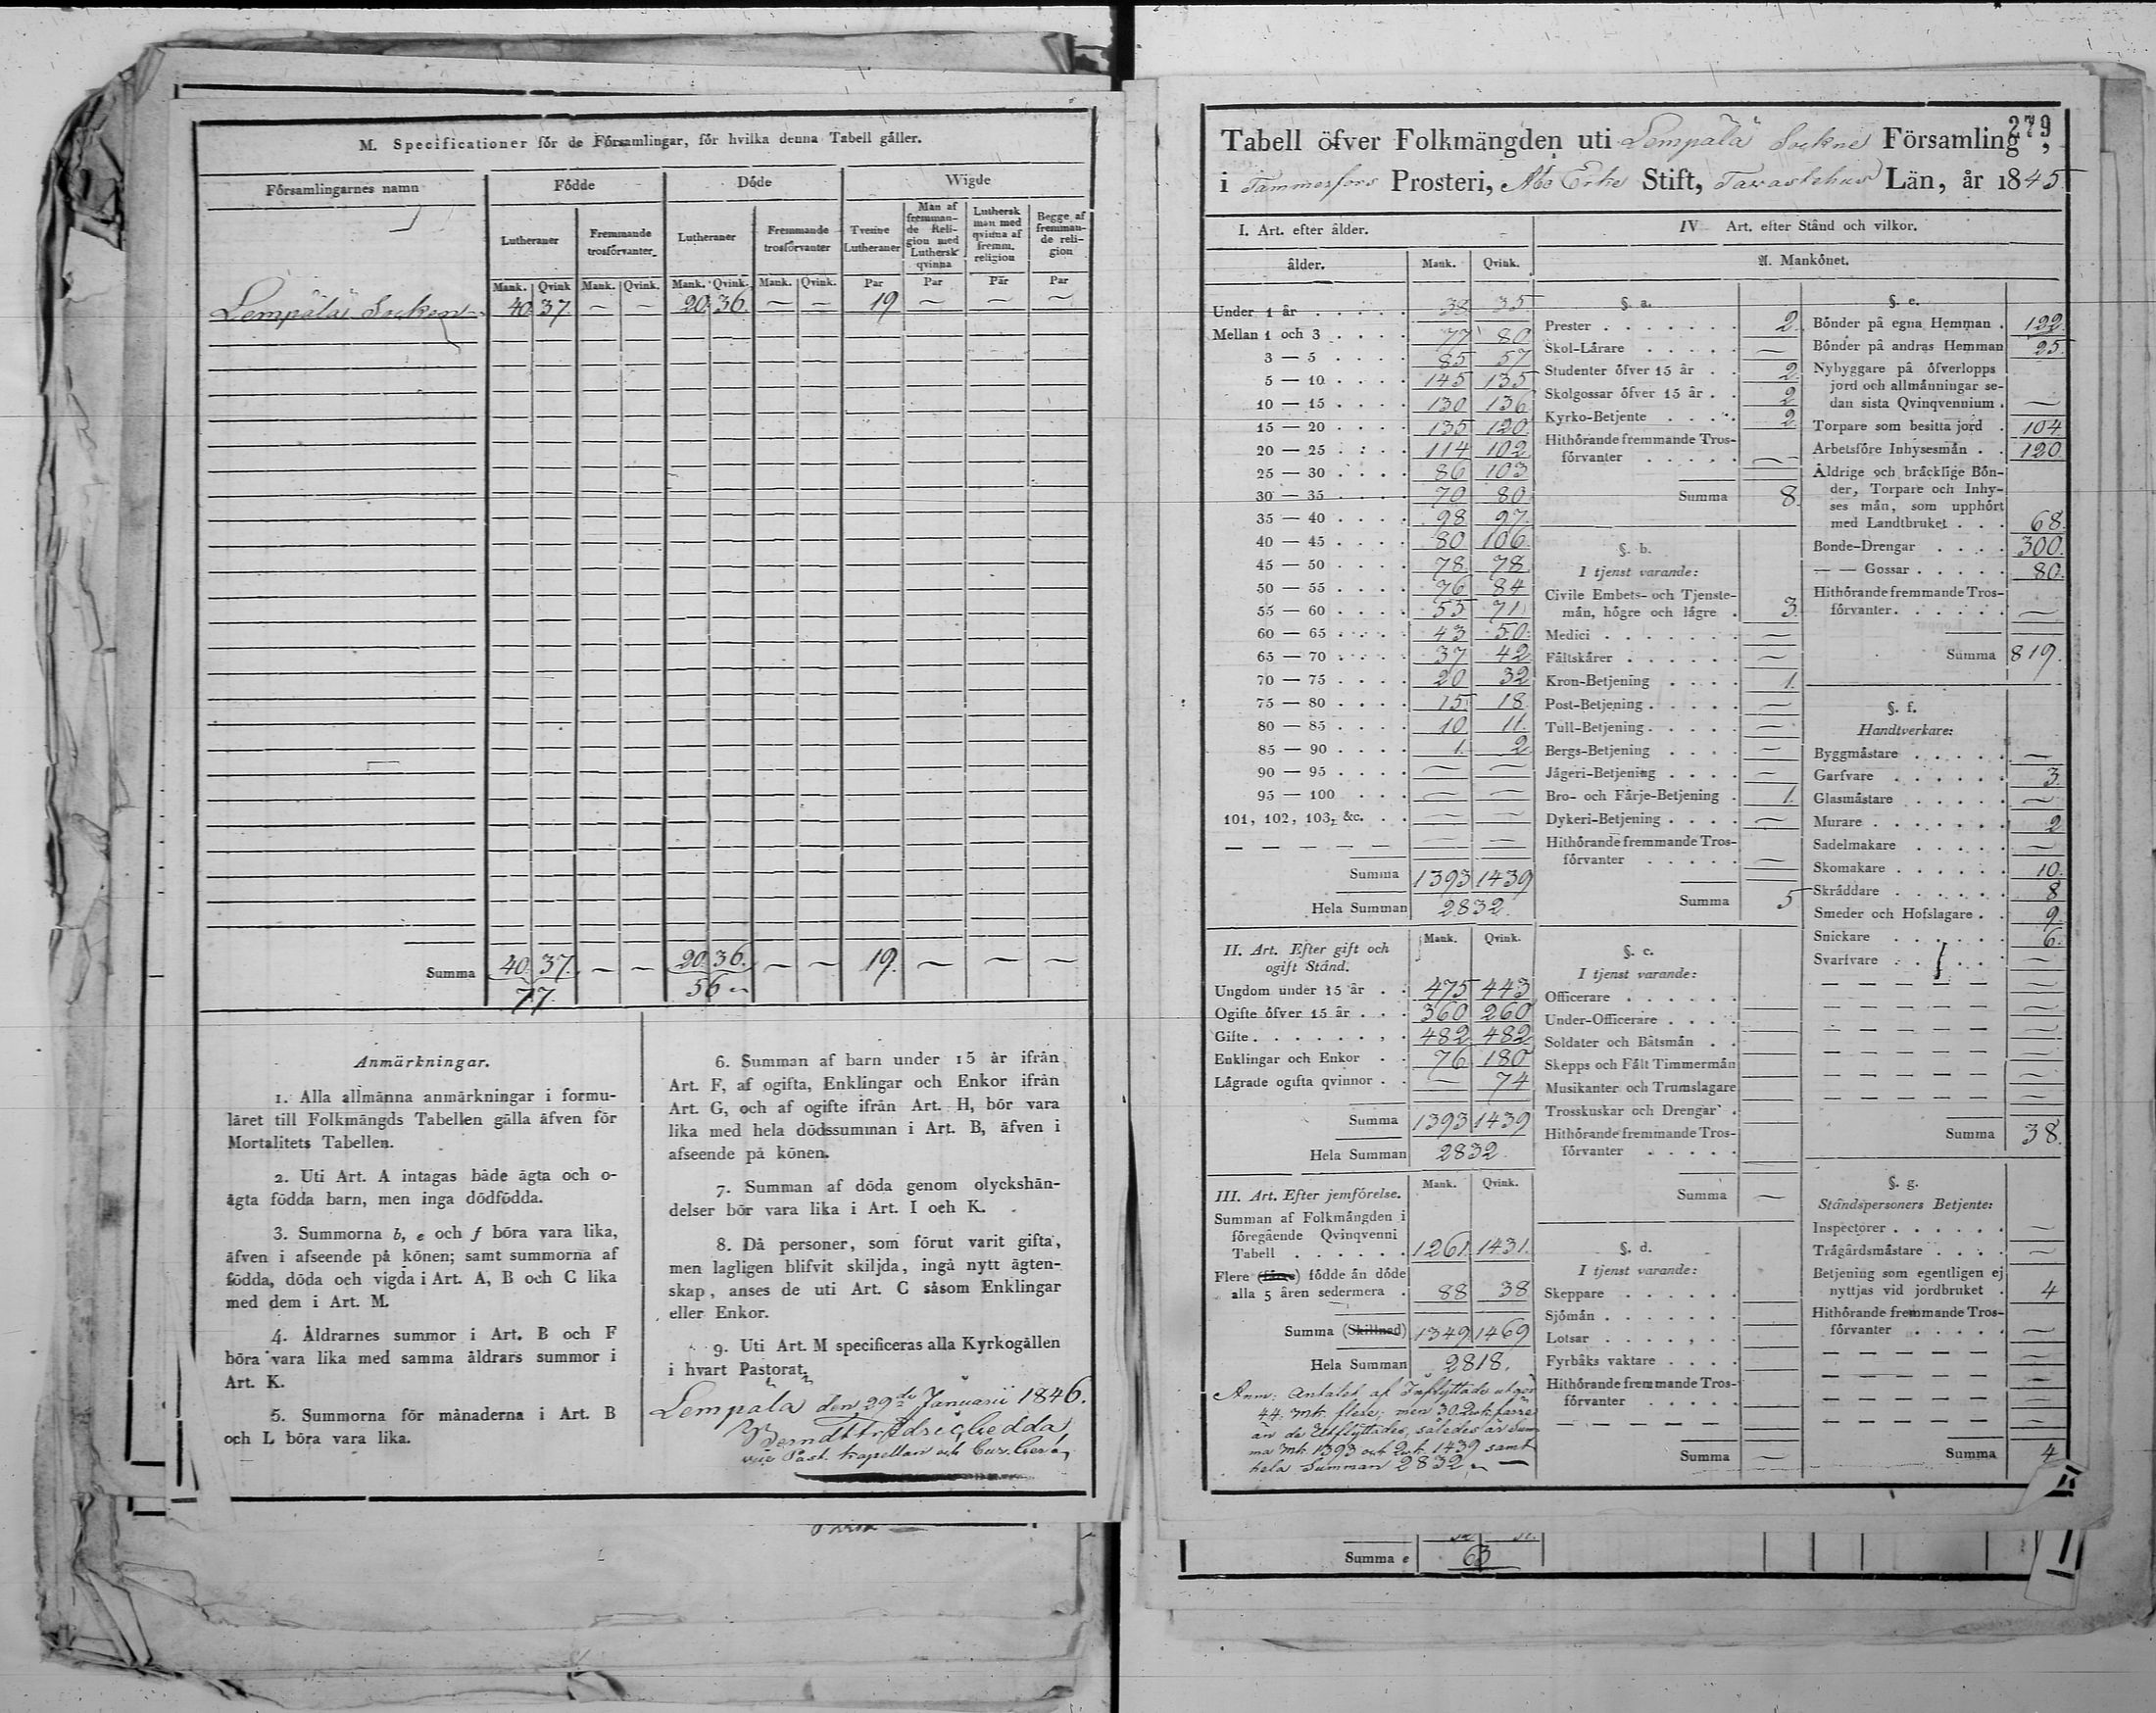 M. Specificationer för de Församlingar, för hvilka denna Tabell gäller.
Församlingarnes namn
Födde
Döde
Wigde
Lutheraner
Fremmande trosförvanter
Lutheraner
Fremmande trosförvanter
Tvenne Lutheraner
Man af fremmande Religion med Luthersk qvinna
Luthersk man med qvinna af fremm. religion
Begge af fremmande religion
Mank. Qvink Mank. Qvink. Mank. Qvink. Mank. Qvink. Par Par Par Par
Lempälä Socken 40. 37. — — 20. 36. — — 19 — — —
Summa 40. 37. — — 20. 36. — — 19. — — —
77. 56
Anmärkningar.
1. Alla allmänna anmärkningar i formu-
läret till Folkmängds Tabellen gälla äfven för
Mortalitets Tabellen.
2. Uti Art. A intagas både ägta och o-
ägta födda barn, men inga dödfödda.
3. Summorna b, e och f böra vara lika,
äfven i afseende på könen; samt summorna af
födda, döda och vigda i Art. A, B och C lika
med dem i Art. M.
4. Åldrarnes summor i Art. B och F
böra vara lika med samma åldrars summor i
Art. K.
5. Summorna för månaderna i Art. B
och L böra vara lika.
6. Summan af barn under 15 år ifrån
Art. F, af ogifta, Enklingar och Enkor ifrån
Art. G, och af ogifte ifrån Art. H, bör vara
lika med hela dödssumman i Art. B, äfven i
afseende på könen.
7. Summan af döda genom olyckshän-
delser bör vara lika i Art. I och K.
8. Då personer, som förut varit gifta,
men lagligen blifvit skiljda, ingå nytt ägten-
skap, anses de uti Art. C såsom Enklingar
eller Enkor.
9. Uti Art. M specificeras alla Kyrkogällen
i hvart Pastorat.
Lempälä den 29de Januarii 1846.
Berndt Fredric Hedda
vice Past. Kapellan och
279
Tabell öfver Folkmängden uti Lempälä Sockne Församling,
i Tammerfors Prosteri, Åbo Erke Stift, Tavastehus Län, år 1845
I. Art. efter ålder.
ålder. Mank. Qvink.
Under 1 år 38 35
Mellan 1 och 3 77 80
3 — 5 85 57
5 — 10 145 135
10 — 15 130 136
15 — 20 135 120
20 — 25 114 102
25 — 30 86 103
30 — 35 70 80
35 — 40 98 97
40 — 45 80 106
45 — 50 78 78
50 — 55 76 84
55 — 60 55 71
60 — 65 43 50
65 — 70 37 42
70 — 75 20 32
75 — 80 15 18
80 — 85 10 11
85 — 90 1 2
90 — 95 — —
95 — 100 — —
101, 102, 103, &c. — —
— — — — — — —
Summa 1393 1439
Hela Summan 2832.
II. Art. Efter gift och ogift Stånd. Mank. Qvink.
Ungdom under 15 år 475 443
Ogifte öfver 15 år 360 260
Gifte 482 482
Enklingar och Enkor 76 180
Lägrade ogifta qvinnor — 74
Summa 1393 1439
Hela Summan 2832
III. Art. Efter jemförelse. Mank. Qvink.
Summan af Folkmängden i
föregående Qvinqvenni
Tabell 1261 1431.
Flere (färre) födde än döde
alla 5 åren sedermera 88 38
Summa (Skillnad) 1349 1469
Hela Summan 2818.
Anm: Antalet af Inflyttade utgör
44. mk. flere; men 30 Qvk färre
än de Utflyttades, således är Sum-
ma Mk. 1393 och Qvk. 1439 samt
hela Summan 2832
IV Art. efter Stånd och vilkor.
A. Mankönet.
§. a.
Prester 2.
Skol-Lärare —
Studenter öfver 15 år 2.
Skolgossar öfver 15 år 2
Kyrko-Betjente 2.
Hithörande fremmande Tros-
förvanter —
Summa 8.
§. b.
I tjenst varande:
Civile Embets- och Tjenste-
män, högre och lägre 3.
Medici —
Fältskärer —
Kron-Betjening 1.
Post-Betjening —
Tull-Betjening —
Bergs-Betjening —
Jägeri-Betjening —
Bro- och Färje-Betjening 1.
Dykeri-Betjening —
Hithörande fremmande Tros-
förvanter —
Summa 5
§. c.
I tjenst varande:
Officerare
Under-Officerare
Soldater och Båtsmän
Skepps och Fält Timmermän
Musikanter och Trumslagare
Trosskuskar och Drengar
Hithörande fremmande Tros-
förvanter
Summa —
§. d.
I tjenst varande:
Skeppare
Sjömän
Lotsar
Fyrbåks vaktare
Hithörande fremmande Tros-
förvanter
— — — — —
Summa —
§. e.
Bönder på egna Hemman 122.
Bönder på andras Hemman 25.
Nybyggare på öfverlopps
jord och allmänningar se-
dan sista Qvinqvennium —
Torpare som besitta jord 104
Arbetsföre Inhysesmän 120
Åldrige och bräcklige Bön-
der, Torpare och Inhy-
ses män, som upphört
med Landtbruket 68.
Bonde-Drengar 300.
— — Gossar 80.
Hithörande fremmande Tros-
förvanter —
Summa 819.
§. f.
Handtverkare:
Byggmästare —
Garfvare 3.
Glasmästare —
Murare 2
Sadelmakare —
Skomakare 10.
Skräddare 8
Smeder och Hofslagare 9.
Snickare 6.
Svarfvare —
Summa 38.
§. g.
Ståndspersoners Betjente:
Inspectorer —
Trägårdsmästare —
Betjening som egentligen ej
nyttjas vid jordbruket 4
Hithörande fremmande Tros-
förvanter —
Summa 4
Summa e 63